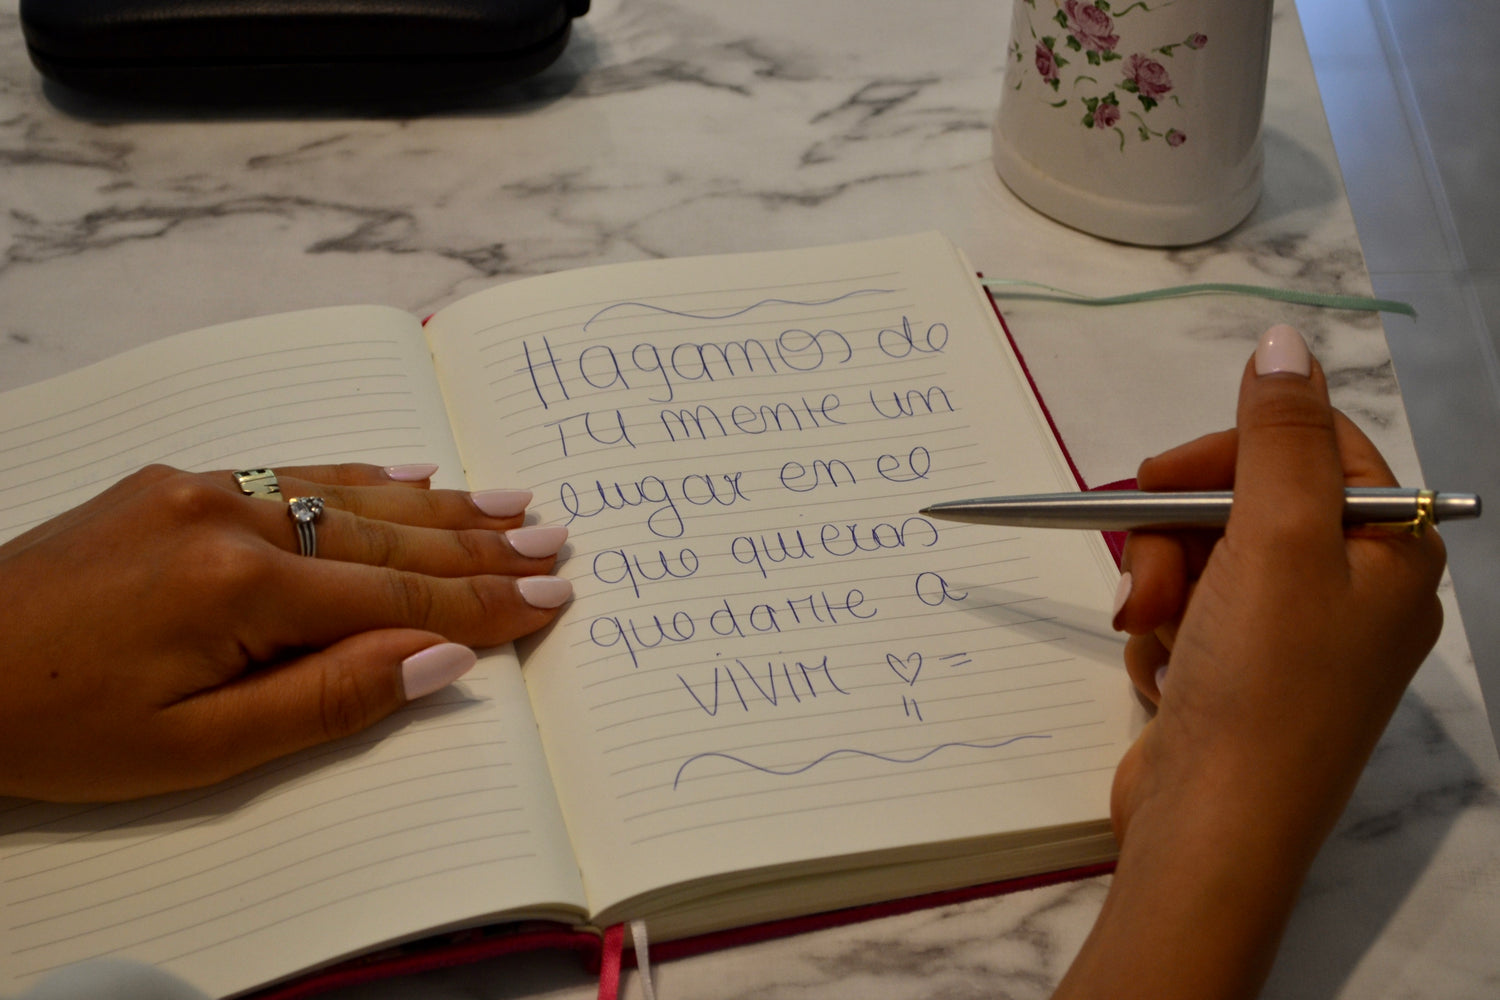 Hagamos de
TU mente un
lugar en el
que quieras
quedarte a
VIVIR ♡ =